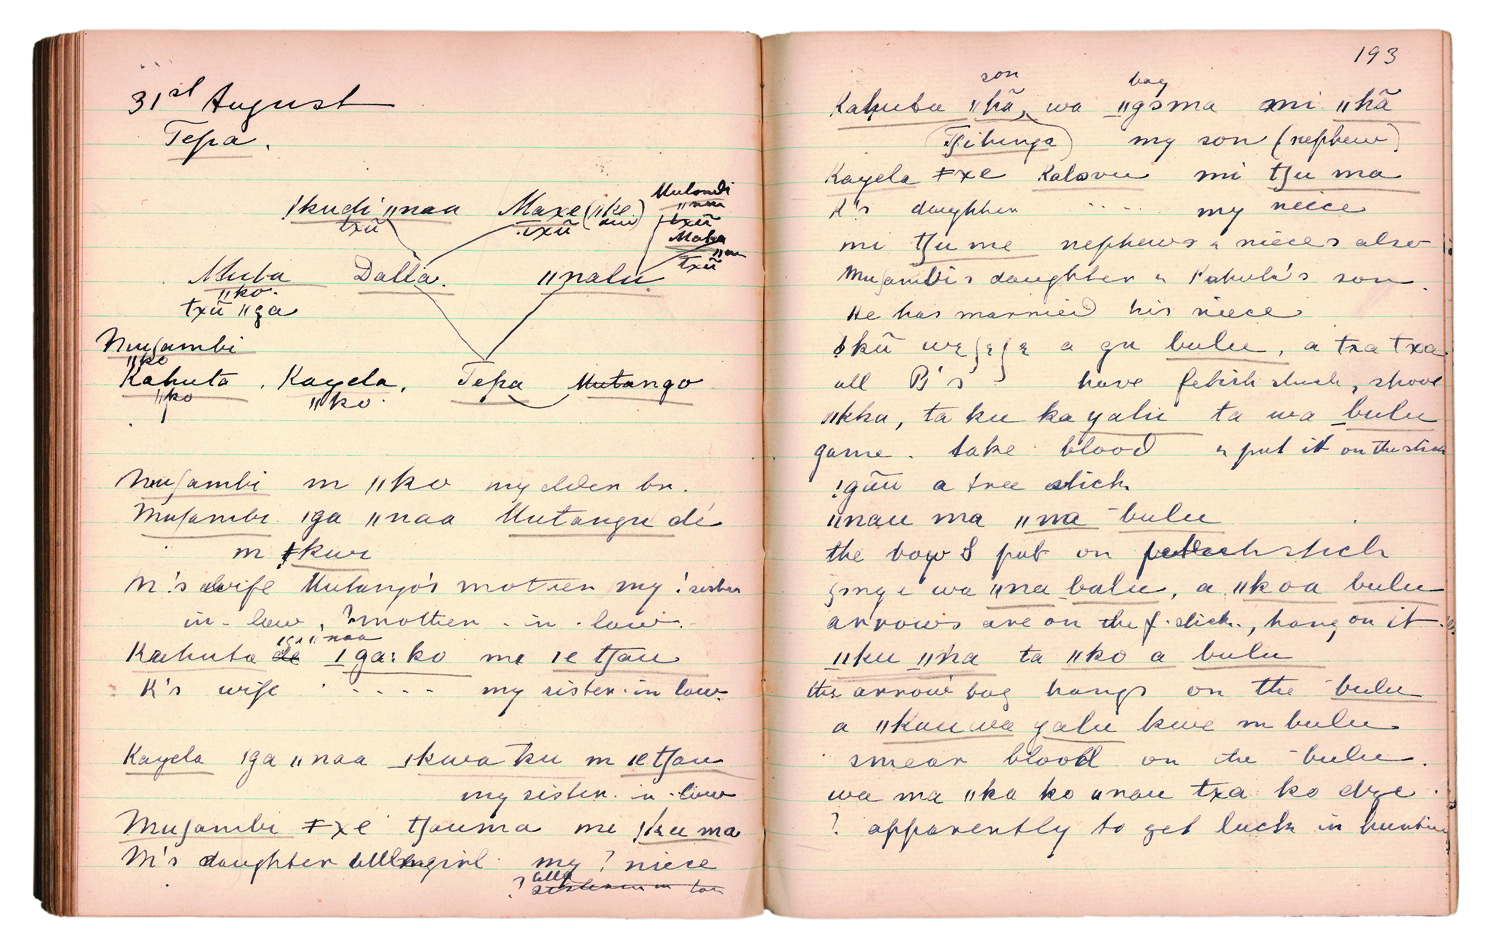 31st August
Tepa.
ǃkudi ǁnaa Maxe (ǁke Mulondi
txũ txũ txũ
Maha
txũ
Muba Dalla. ǁnalu
ǁko.
txũ ǁga
Muʃambi
ǁko
Kahuta, Kayela, Tepa Mutango
ǁko ǁko.
Muʃambi m ǁko my elder br.
Muʃambi ıga ǁnaa Mutangu de
m ǂkwi
M's wife Mutango's mother my ! sister
in-law, ? mother-in-law.
ıga ǁnaa
Kahuta de ı ga: ko me ıe tʃau
K's wife . . . . my sister-in law.
Kayela ıga ǁnaa ıkwa ku m ıe tʃau
my sister-in-law
Muʃambi ǂxe tʃauma me ǃku ma
M's daughter girl my ? niece
?
193
son bag
Kahuta ǁhã, wa ǁgoma mi ǁhã
(Tʃihinga) my son (nephew)
Kayela ǂxe Kalovu mi tʃu ma
K's daughter . . . . my neice
mi tʃu me nephews & nieces also
Muʃambi's daughter & Kahuta's son.
He has married his niece
ǃkũ a gu bulu, a txa txa
all B's have fetish stick, shove
ǁkha, ta ku ka yalu ta wa bulu
game. take blood & put it on the stick
ǃgãũ a tree stick.
ǁnau ma ǁna bulu
the bow I put on fetish stick
wa ǁna balu, a ǁkoa bulu
arrows are on the f. stick, hang on it.
ǁku ǁna ta ǁko a bulu
the arrow bag hangs on the bulu
a ǁkau wa yalu kwe m bulu
smear blood on the bulu.
wa ma ǁka ko ǁnau txa ko dze.
? apparently to get luck in hunting